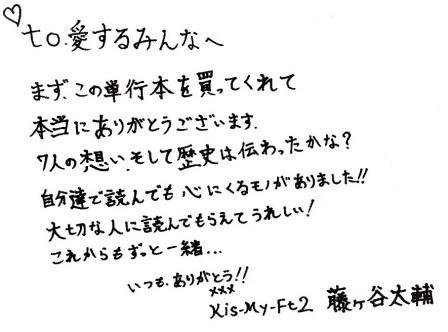 ♡to.愛するみんなへ
まず、この単行本を買ってくれて
本当にありがとうございます.
7人の想い、そして歴史は伝わったかな?
自分達で読んでも心にくるモノがありました!!
大切な人に読んでもらえてうれしい!
これからもずっと一緒...
いつも、ありがとう!!
xxx
Kis-My-Ft2 藤ヶ谷太輔